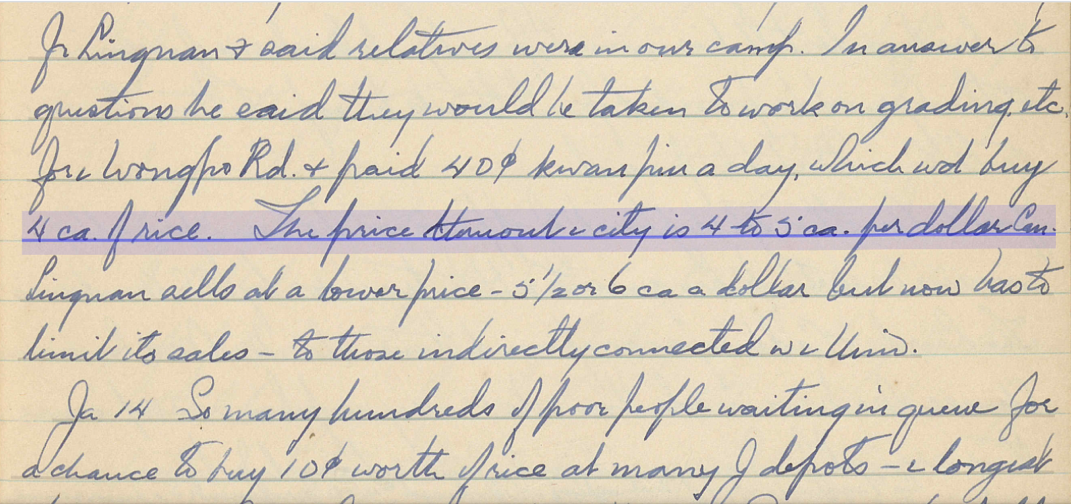 fr Lingnan & said relatives were in our camp. In answer to
questions he said they would be taken to work on grading, etc.
for Wongpo Rd. & paid 40¢ kwan pin a day, which wd buy
4 ca. of rice. The price thruout city is 4 to 5 ca. per dollar Can.
Lingnan sells at a lower price - 5 1/2 or 6 ca a dollar but now has to
limit its sales - to those indirectly connected w Univ.
Ja 14 So many hundreds of poor people waiting in queue for
a chance to buy 10¢ worth of rice at many J depots - longest